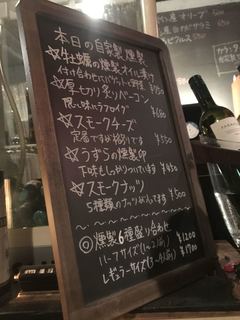 本日の自家製燻製
☆牡蠣の燻製オイル漬け
付け合せにバゲット ¥750
☆厚切り炙りベーコン
¥680
☆スモークチーズ
定番ですが ¥550
☆うずらの燻製卵
下味もしっかりつけています ¥450
☆スモークナッツ
5種類のナッツが入ってます ¥500
◎燻製6種盛り合わせ
ハーフサイズ(1〜2人前) ¥1200
レギュラーサイズ(3〜4人前) ¥1700
オリーブ